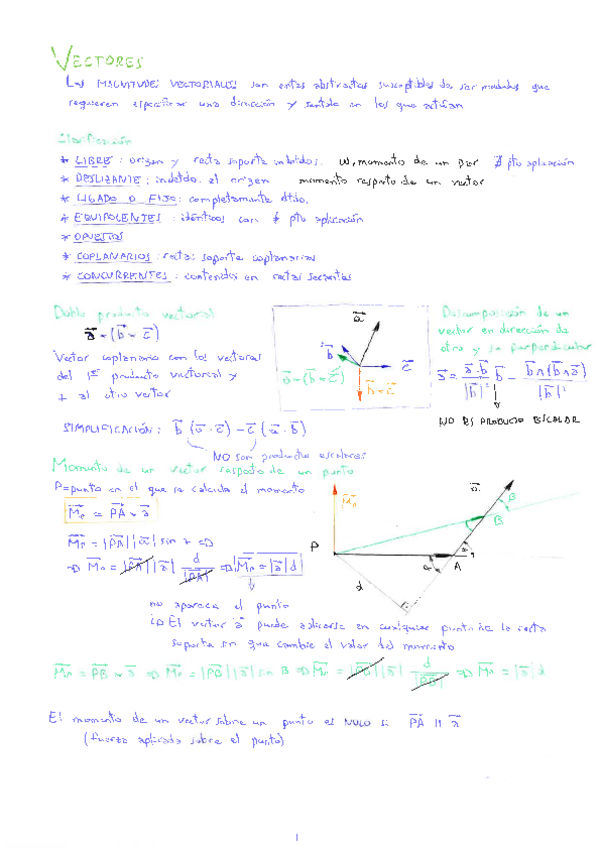 VECTORES
Las MAGNITUDES VECTORIALES son entes abstractos susceptibles de ser medidos que
requieren especificar una dirección y sentido en los que actúan
Clasificación
* LIBRE: origen y recta soporte indetdos. w, momento de un par ∄ pto aplicación
* DESLIZANTE: indetdo. el origen momento respecto de un vector
* LIGADO O FIJO: completamente dtdo.
* EQUIPOLENTES: idénticos con ≠ pto aplicación
* OPUESTOS
* COPLANARIOS: rectas soporte coplanarias
* CONCURRENTES: contenidos en rectas secantes
Doble producto vectorial
a⃗ ∧ (b⃗ ∧ c⃗)
Vector coplanario con los vectores
del 1er producto vectorial y
⊥ al otro vector
SIMPLIFICACIÓN: b⃗ (a⃗ · c⃗) − c⃗ (a⃗ · b⃗)
NO son productos escalares
a⃗
b⃗
c⃗
a⃗ ∧ (b⃗ ∧ c⃗)
b⃗ ∧ c⃗
Descomposición de un
vector en dirección de
otro y su perpendicular
a⃗ = (a⃗ · b⃗ / |b⃗|²) b⃗ − b⃗ ∧ (b⃗ ∧ a⃗) / |b⃗|²
NO ES PRODUCTO ESCALAR
Momento de un vector respecto de un punto
P = punto en el que se calcula el momento
M⃗p = PA⃗ ∧ a⃗
M⃗p = |PA⃗| |a⃗| sin α ⇒
⇒ M⃗p = |PA⃗| |a⃗| d / |PA⃗| ⇒ |M⃗p = |a⃗| d|
no aparece el punto
El vector a⃗ puede aplicarse en cualquier punto de la recta
soporte sin que cambie el valor del momento
M⃗p
P
d
a⃗
β
B
α
A
M⃗p = PB⃗ ∧ a⃗ ⇒ M⃗p = |PB⃗| |a⃗| sin β ⇒ M⃗p = |PB⃗| |a⃗| d / |PB⃗| ⇒ M⃗p = |a⃗| d
El momento de un vector sobre un punto es NULO si PA⃗ || a⃗
(fuerza aplicada sobre el punto)
1